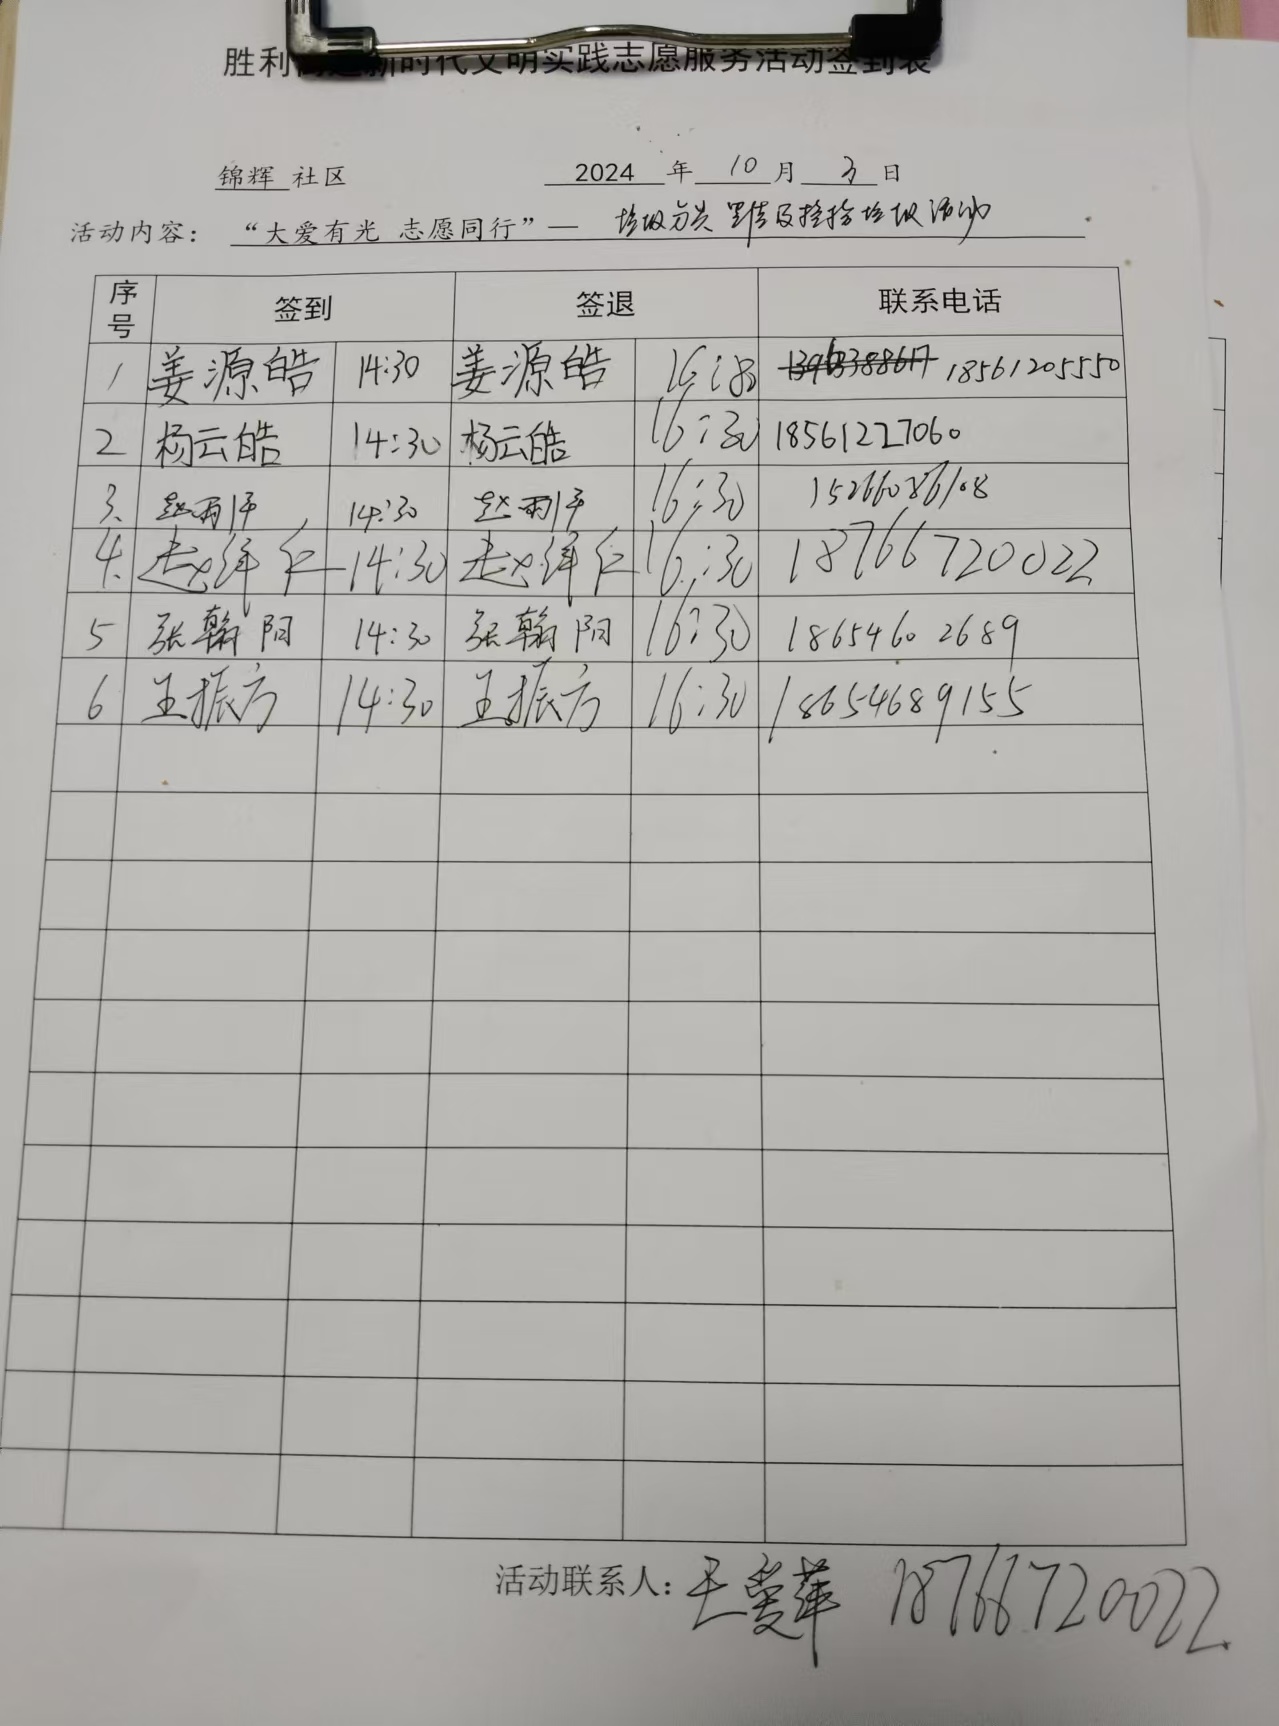 胜利街道新时代文明实践志愿服务活动签到表
锦辉 社区 2024 年 10 月 3 日
活动内容： “大爱有光 志愿同行”— 垃圾分类 及捡拾垃圾活动
序号 签到 签退 联系电话
1 姜源皓 14:30 姜源皓 16:30 18561205550
2 杨云皓 14:30 杨云皓 16:30 18561227060
3、 赵雨泽 14:30 赵雨泽 16:30 15266086108
4、 14:30 16:30 18766720022
5 张翰阳 14:30 张翰阳 16:30 18654602689
6 王振方 14:30 王振方 16:30 18654689155
活动联系人： 王爱萍 18766720022